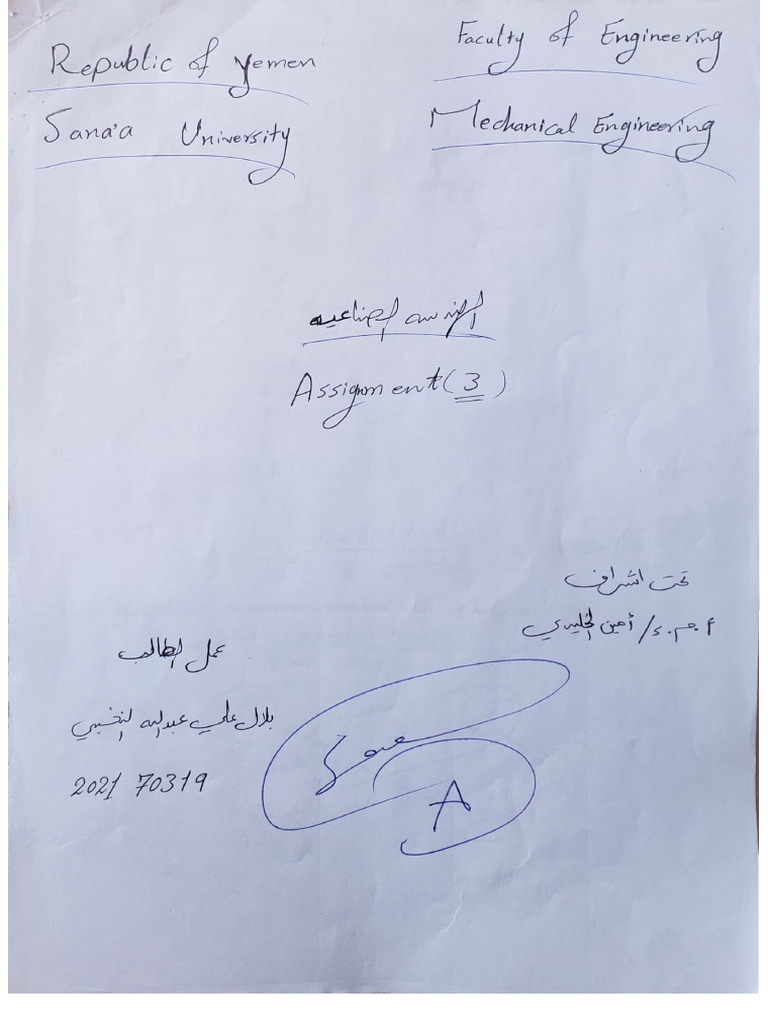 Republic of Yemen
Sana'a University
Faculty of Engineering
Mechanical Engineering
الهندسه الصناعيه
Assignment (3)
تحت اشراف
أ.م.د/ أمين الخليدي
عمل الطالب
بلال علي عبدالله
2021 70319
A